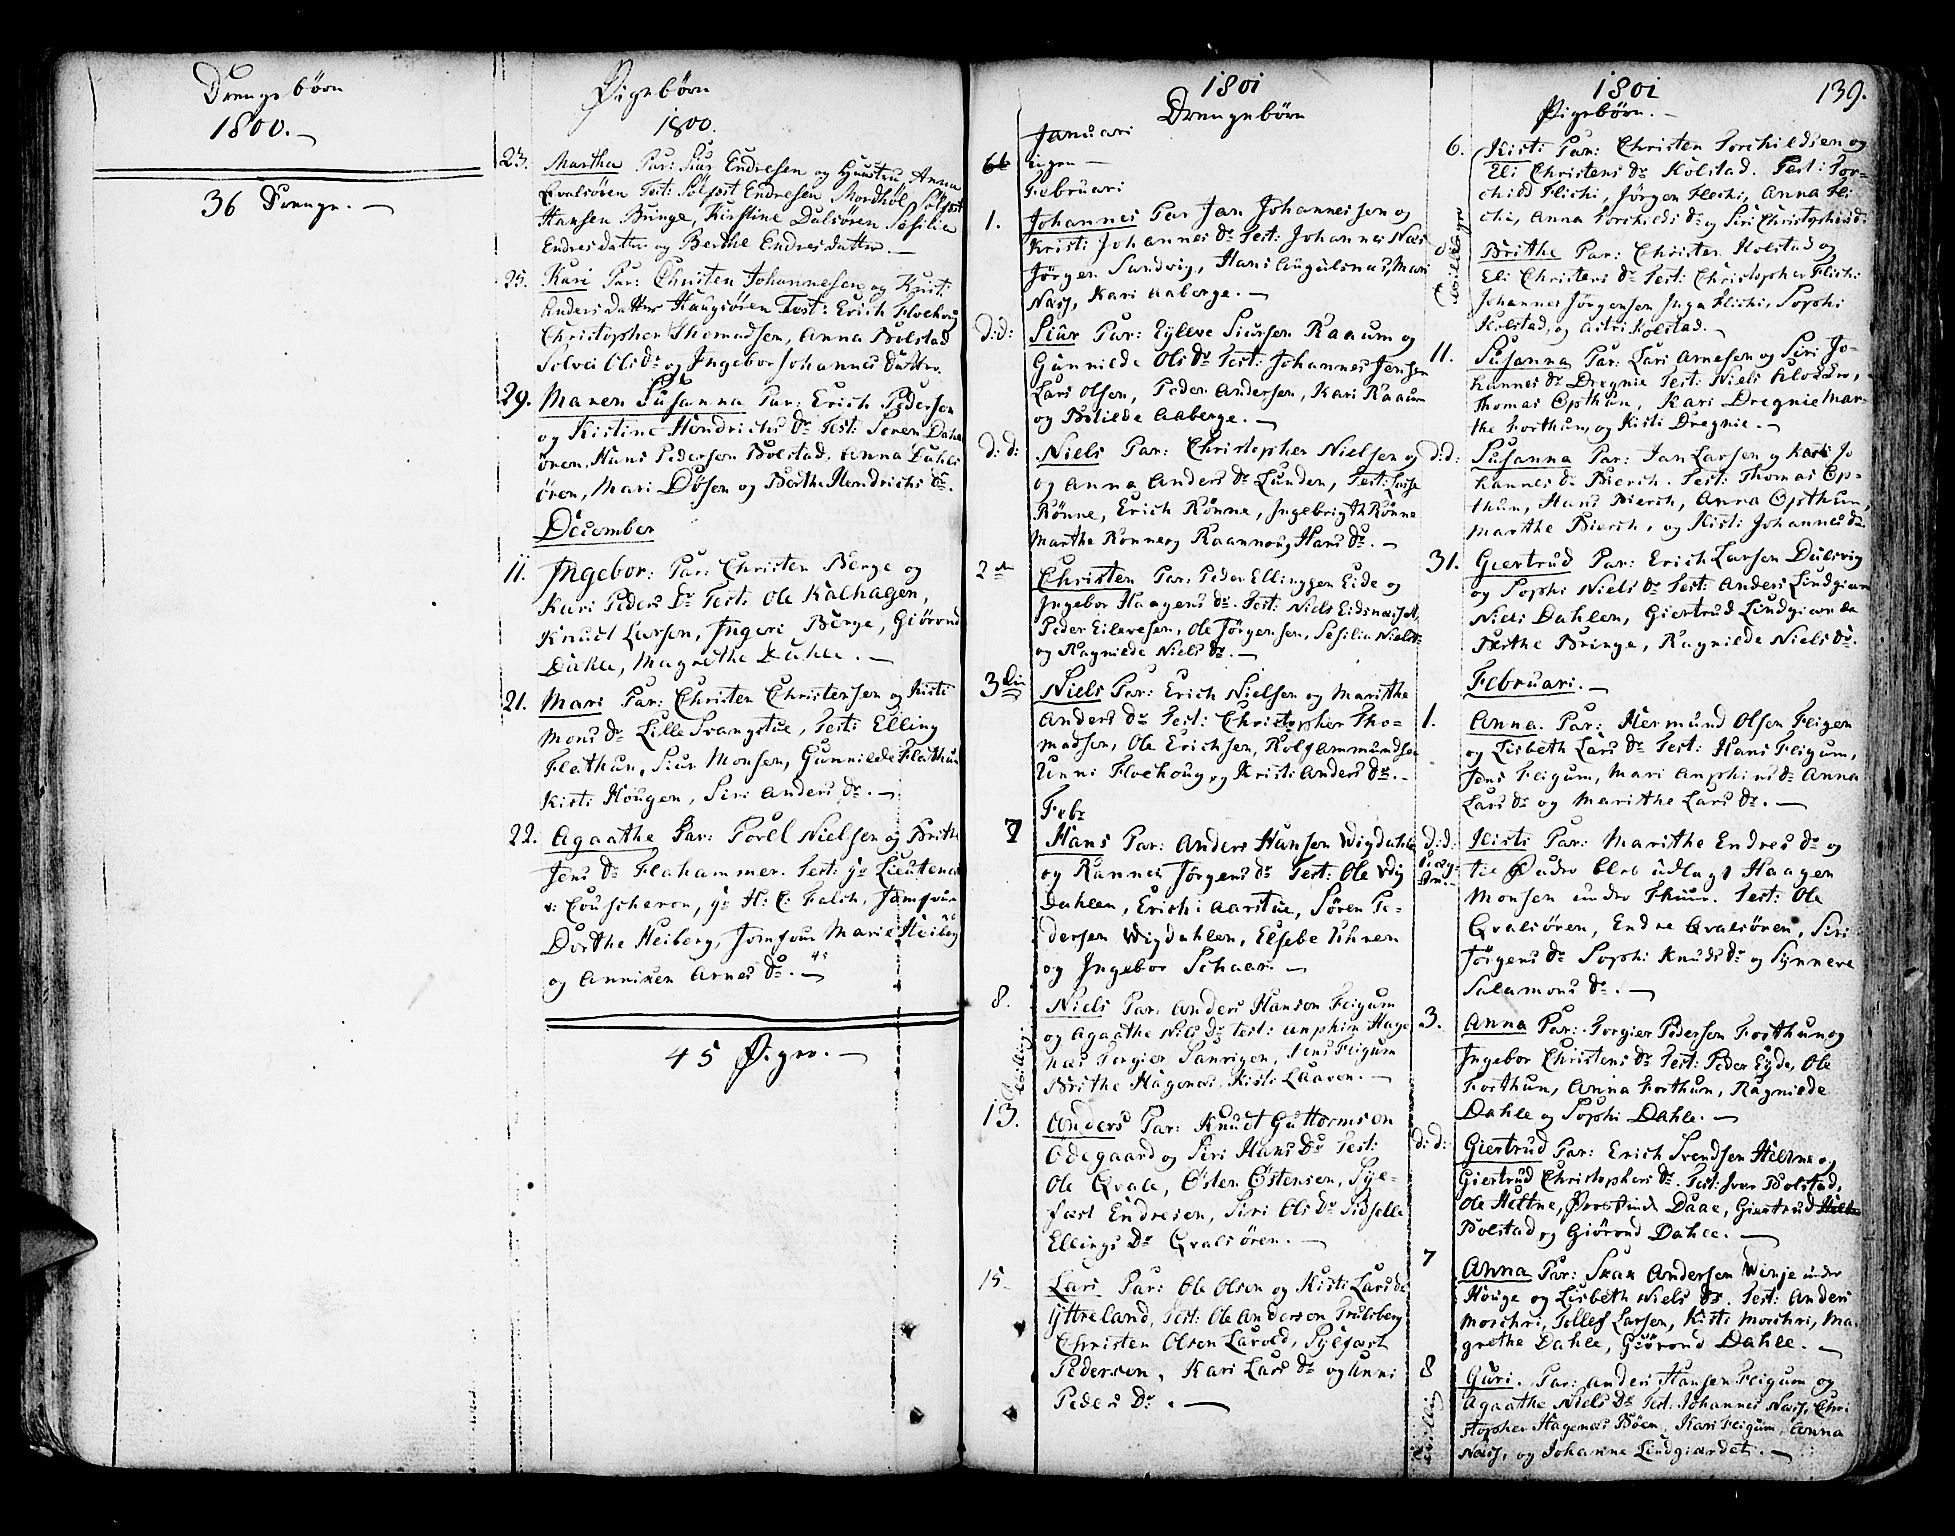 Drengebörn
1800.
36 Drenge.
Pigebörn
1800.
23. Martha Par: Siur Endresen og Hustru Anna
Qvalsören Test: Sölfest Endresen Mordhöl Sölfest
Hansen Bringe, Kirstine Dalsören Sesilie
Endresdatter og Berthe Endresdatter.
25. Kari Par: Christen Johannesen og Kristi
Andersdatter Haugsören Test: Erich Floehoug
Christopher Thomassen, Anna Bolstad
Solvei Olsdr og Ingebor Johannesdatter.
29. Maren Susanna Par: Erich Pedersen
og Kistine Hendrichs Dr Test: Søren Dahls
ören, Hans Pedersen Bolstad, Anna Dahls
ören, Mari Døsen og Berthe Hendrichs dr.
December
11. Ingebor: Par: Christen Berge og
Kari Peders Dr Test: Ole Kalhagen,
Knud Larsen, Ingeri Berge, Giörond
Dahle, Magrethe Dahle.
21. Mari Par: Christen Christensen og Kisti
Mons dr Lille Svangstue, Test: Elling
Flathun, Siur Monsen, Gunnilde Flathun
Kisti Hougen, Siri Anders dr.
22. Agaathe Par: Povel Nielsen og Brithe
Jens dr Flahammer. Test: Hr Lieutenant
v: Couscheron, Hr H: C: Falch, Jomfrue
Dorthe Heiberg, Jomfrue Marie Heiberg
og Anniken Arnes dr. 45
45 Piger.
1801
Drengebörn
Januari
ingen
Februari
1. Johannes Par Jan Johannessen og
Kristi Johannes dr Test: Johannes Næs
Jörgen Sandvig, Hans Augulsnæs, Mari
Næs, Kari Aaberge.
d:d: Siur Par: Eyleve Siursen Raaum og
Gunnilde Ols dr Test: Johannes Jensen
Lars Olsen, Peder Andersen, Kari Raaum
og Botilde Aaberge.
d:d: Niels Par: Christopher Nielsen og
og Anna Anders dr Lunden, Test: Lasse
Rönne, Erich Rönne, Ingebrigth Rönne
Marthe Rönne og Raannoug Hans dr.
2den Christen Par: Peder Ellingsen Eide og
Ingebor Haagens dr. Test: Niels Eidsnæset,
Peder Eilevesen, Ole Jörgensen, Sesilia Nielsdr
og Ragnilde Niels dr.
3die Niels Par: Erich Nielsen og Marithe
Anders dr Test: Christopher Tho-
madsen, Ole Erichsen, Rolf Ammundsen
Unni Floehoug og Kristi Anders dr.
Febr
7 Hans Par: Anders Hansen Wigdahlen
og Rannei Jörgens dr Test: Ole Wig
Dahlen, Erich Aarstue, Sören Pe-
dersen Wigdahlen, Elsebe Lohnen
og Ingebor Schaar.
8. Niels Par: Anders Hanson Feigum
og Agaathe Nils dr Test: Anphin Hage
næs Torgier Sanrigen, Jens Feigum
Brithe Hagenæs, Kisti Laaven.
Tvilling:
13. Anders Par: Knud Guttormson
Odegaard og Siri Hans Dr Test:
Ole Qvale, Östen Östensen, Syl-
fæst Endresen, Siri Ols dr Sidselle
Ellings Dr Qvalsören.
15. Lars Par: Ole Olsen og Kisti Lars dr
Yttreland, Test: Ole Andersen Trulsberg
Christen Olsen Lavold, Sylfæst
Pedersen, Kari Lars dr og Unni
Peders Dr.
1801
139.
Pigebörn.
6. Kisti Par: Christen Torchildsen og
Eli Christens dr Kolstad. Test: Tor-
child Flichi, Jörgen Flichi, Anna Fli
chi, Anna Torchilds dr og Siri Christophersdr
Tvillinger
Brithe Par: Christen Kolstad og
Eli Christens dr Test: Christopher Flichi
Johannes Jörgensen Inga Flichi, Sophi
Kolstad, og Astri Kolstad.
11. Susanna Par: Lars Arnesen og Siri Jo-
hannes dr Dregnie Test: Niels Klokker,
Thomas Opthun, Kari Dregnie Mar-
the Forthun, og Kisti Dregnie.
d:d: Susanna Par: Jan Larsen og Kari Jo
hannes dr Bierch. Test: Thomas Op-
thun, Hans Bierch, Anna Opthun,
Marthe Bierch, og Kisti Johannes dr
31. Giertrud Par: Erich Larsen Dulsvig
og Sophi Niels dr Test: Anders Lindgieren
Niels Dahlen, Giertrud Lindgieren
Brithe Bringe, Ragnilde Niels dr.
Februari.
1. Anna. Par: Hermund Olsen Feigen
og Lisbeth Lars dr Test: Hans Feigum,
Jens Feigum, Mari Anphins dr Anna
Lars dr og Marithe Lars dr.
d:d: Kisti Par: Marithe Endres dr og
til Fader blev udlagt Haagen
Monsen under Thuun. Test: Ole
Qvalsören, Endre Qvalsören, Siri
Jörgens dr Sophi Knuds dr og Synneve
Salamons dr.
3. Anna Par: Torgier Pedersen Forthun og
Ingebor Christens dr Test: Peder Eyde, Ole
Forthun, Anna Forthun, Ragnilde
Dahle og Sophi Dahle.
d:d: Giertrud Par: Erich Svendsen Heltne og
Giertrud Christophers dr. Test: Iver Bolstad,
Ole Heltne, Provstinde Daae, Giertrud
Bolstad og Giörond Dahle.
7 Anna Par: Skak Andersen Winje under
Houge og Lisbeth Niels dr. Test: Anders
Morchri, Tollef Larsen, Kisti Morchri, Ma-
grethe Dahle, Giörond Dahle.
8 Guri. Par: Anders Hansen Feigum og
Agaathe Niels dr Test: Johannes Næss, Chri
stopher Hagenæs Böen, Kari Feigum, Anna
Næss, og Johanna Lindgiærdet.
Tvilling